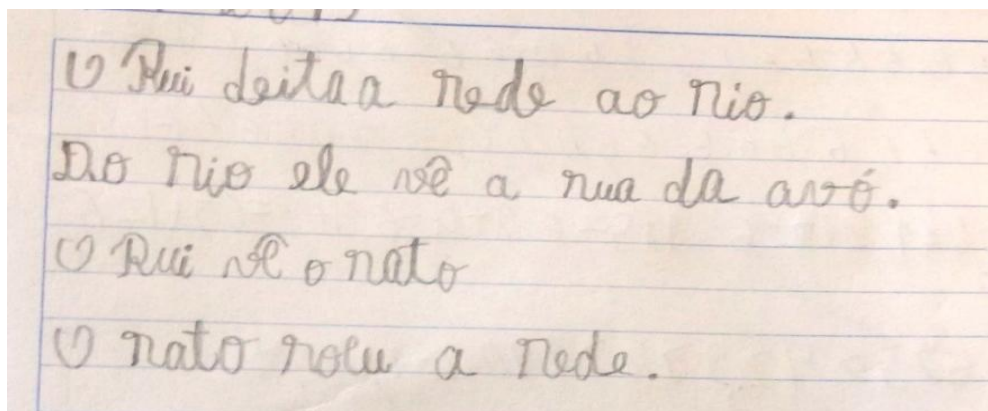 O Rui deitaa rede ao rio.
Do rio ele vê a rua da avó.
O Rui vê o rato
O rato roeu a rede.